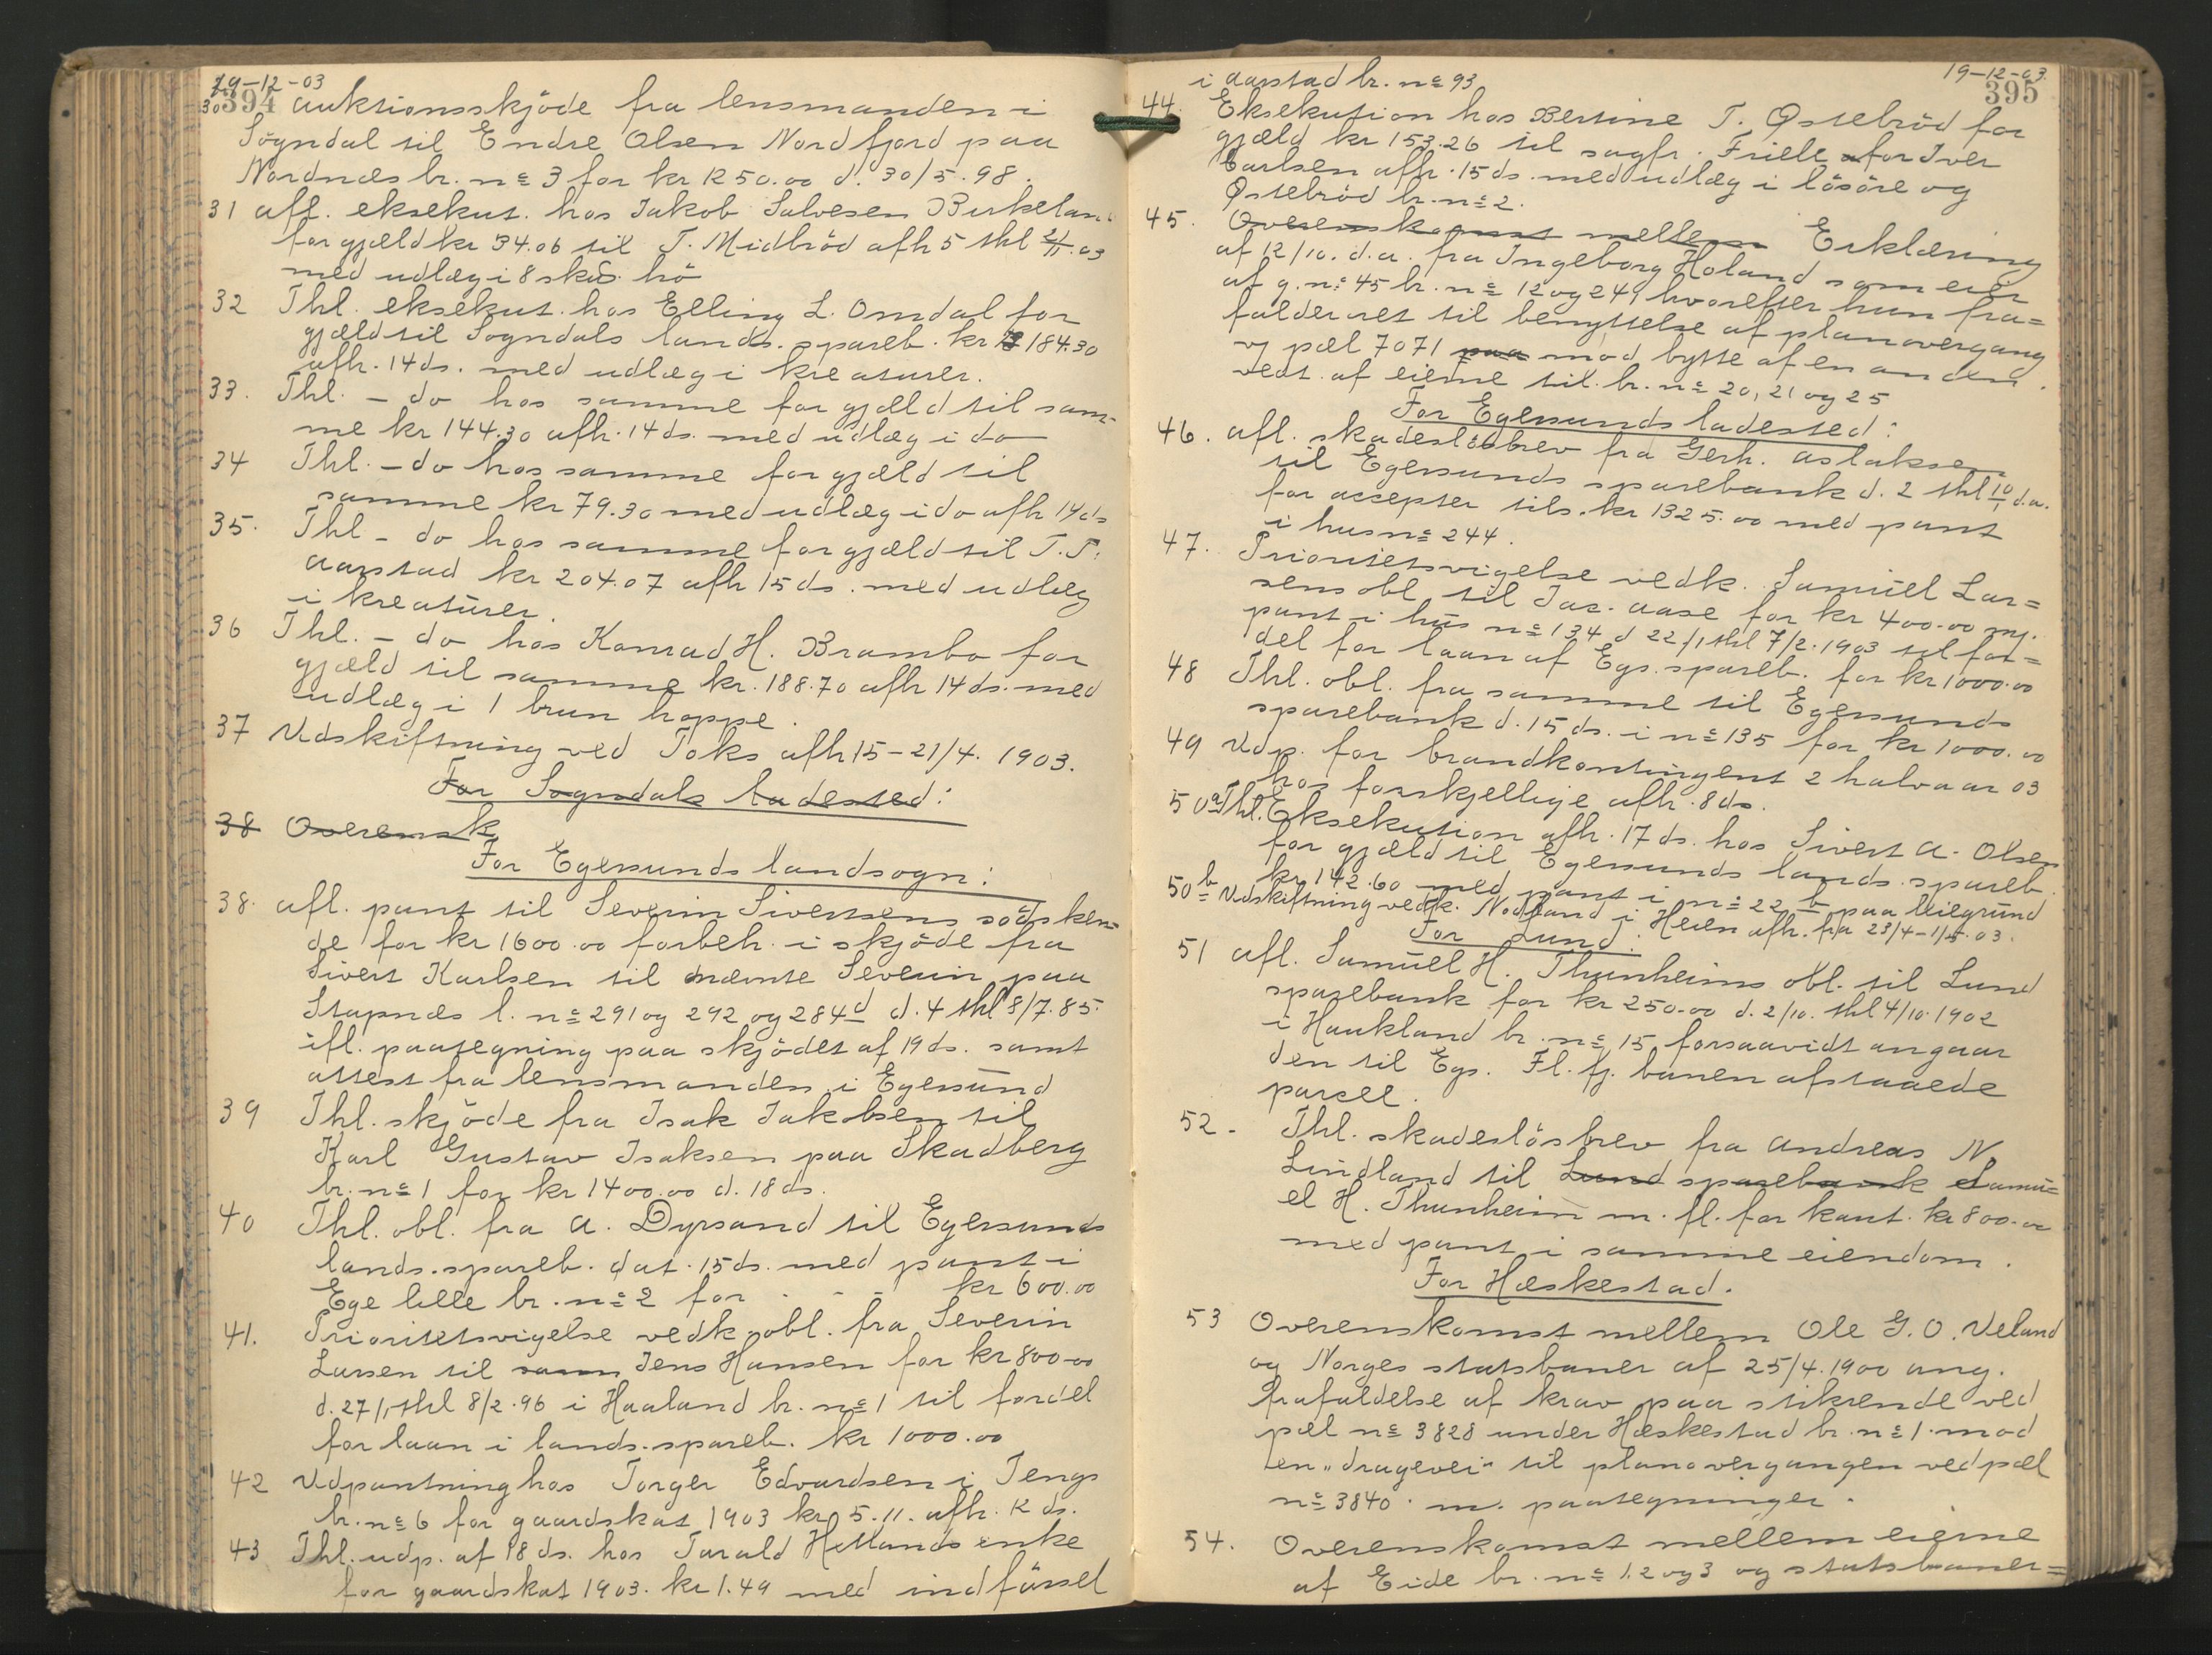 19-12-03
394
30 Auktionsskjöde fra lensmanden i
Sogndal til Endre Olsen Nordfjord paa
Nordnæs br. nº 3 for kr 1250.00 d. 30/5.98.
31 Afl. eksekut. hos Jakob Salvesen Birkeland
for gjæld kr 34.06 til T. Midbröd afh 5 thl 21/11.03
med udlæg i 8 hö
32 Thl. eksekut. hos Elling L. Omdal for
gjæld til Sogndals lands. spareb. kr 184.30
afh. 14 ds. med udlæg i kreaturer.
33. Thl. - do hos samme for gjæld til sam-
me kr 144.30 afh. 14 ds. med udlæg i do
34 Thl. - do hos samme for gjæld til
samme kr 79.30 med udlæg i do afh 14 ds
35. Thl - do hos samme for gjæld til T. T.
Aarstad kr 204.07 afh 15 ds. med udlæg
i kreaturer.
36 Thl. - do hos Konrad H. Brambo for
gjæld til samme kr. 188.70 afh 14 ds. med
udlæg i 1 brun hoppe.
37 Udskiftning ved Toks afh 15-21/4. 1903.
For Sogndals ladested:
38 Overensk
For Egersunds landsogn:
38. Afl. pant til Severin Sivertsens södsken-
de for kr 1600.00 forbeh. i skjöde fra
Sivert Karlsen til nævnte Severin paa
Stapnæs l. nº 291 og 292 og 284d d. 4 thl 8/7.85.
ifl. paategning paa skjödet af 19 ds. samt
attest fra lensmanden i Egersund
39 Thl. skjöde fra Isak Jakobsen til
Karl Gustav Isaksen paa Skadberg
br. nº 1 for kr 1400.00 d. 18 ds.
40 Thl. obl. fra A. Dyrsand til Egersunds
lands. spareb. dat. 15 ds. med pant i
Ege lille br. nº 2 for - - - kr 600.00
41. Prioritetsvigelse vedk. obl. fra Severin
Larsen til sam Jens Hansen for kr 800-00
d. 27/1 thl 8/2.96 i Haaland br. nº 1 til fordel
for laan i lands. spareb. kr 1000.00
42 Udpantning hos Torger Edvardsen i Tengs
br. nº 6 for gaardskat 1903 kr 5.11. afh. 12 ds.
43 Thl. udp. af 18 ds. hos Tarald Hetlands enke
for gaardskat 1903. kr 1.49 med indförsel
19-12-03.
395
i Aarstad br. nº 93
44. Eksekution hos Bertine T. Østebröd for
gjæld kr 153.26 til sagfr. Friele for Iver
Carlsen afh. 15 ds. med udlæg i lösöre og
Østebröd br. nº 2.
45. Overenskomst mellem Erklæring
af 12/10. d.a. fra Ingeborg Höland som eier
af g. nº 45 br. nº 12 og 24, hvorefter hun fra=
falder ret til benyttelse af planovergang
v. pæl 7071 paa mod bytte af en anden
vedt. af eierne til br. nº 20, 21 og 25
For Egersunds ladested:
46. Afl. skadeslösbrev fra Gerh. Aslaksen
til Egersunds sparebank d. 2 thl 10/1 d.a.
for accepter tils. kr 1325.00 med pant
i hus nº 244.
47. Prioritetsvigelse vedk. Samuel Lar=
sens obl. til Jac. Aase for kr 400.00 m.
pant i hus nº 134 d 22/1 thl 7/2.1903 til for=
del for laan af Egs. spareb. for kr 1000.00
48 Thl. obl. fra samme til Egersunds
sparebank d. 15 ds. i nº 135 for kr 1000.00
49 Udp. for brandkontingent 2 halvaar 03
hos forskjellige afh. 8 ds.
50a Thl. Eksekution afh. 17 ds. hos Sivert A. Olsen
for gjæld til Egersunds lands. spareb.
kr 142.60 med pant i nº 22 b paa leiegrund
50b Udskiftning vedk. Nodland i Heien afh. fra 23/4-1/5.03.
For Lund.
51 Afl. Samuel H. Thunheims obl. til Lund
sparebank for kr 250.00 d. 2/10. thl 4/10.1902
i Haukland br. nº 15 forsaavidt angaar
den til Egs. Fl. fj. banen afstaaede
parcel.
52. Thl. skadeslösbrev fra Andreas N.
Lindland til Lund sparebank Samu=
el H. Thunheim m. fl. for kaut. kr 800.00
med pant i samme eiendom.
For Heskestad.
53 Overenskomst mellem Ole G. O. Veland
og Norges statsbaner af 25/4.1900 ang.
frafaldelse af krav paa stikrende ved
pæl nº 3828 under Heskestad br. nº 1. mod
en "dragevei" til planovergangen ved pæl
nº 3840. m. paategninger.
54. Overenskomst mellem eierne
af Eide br. nº 1. 2 og 3 og statsbaner=